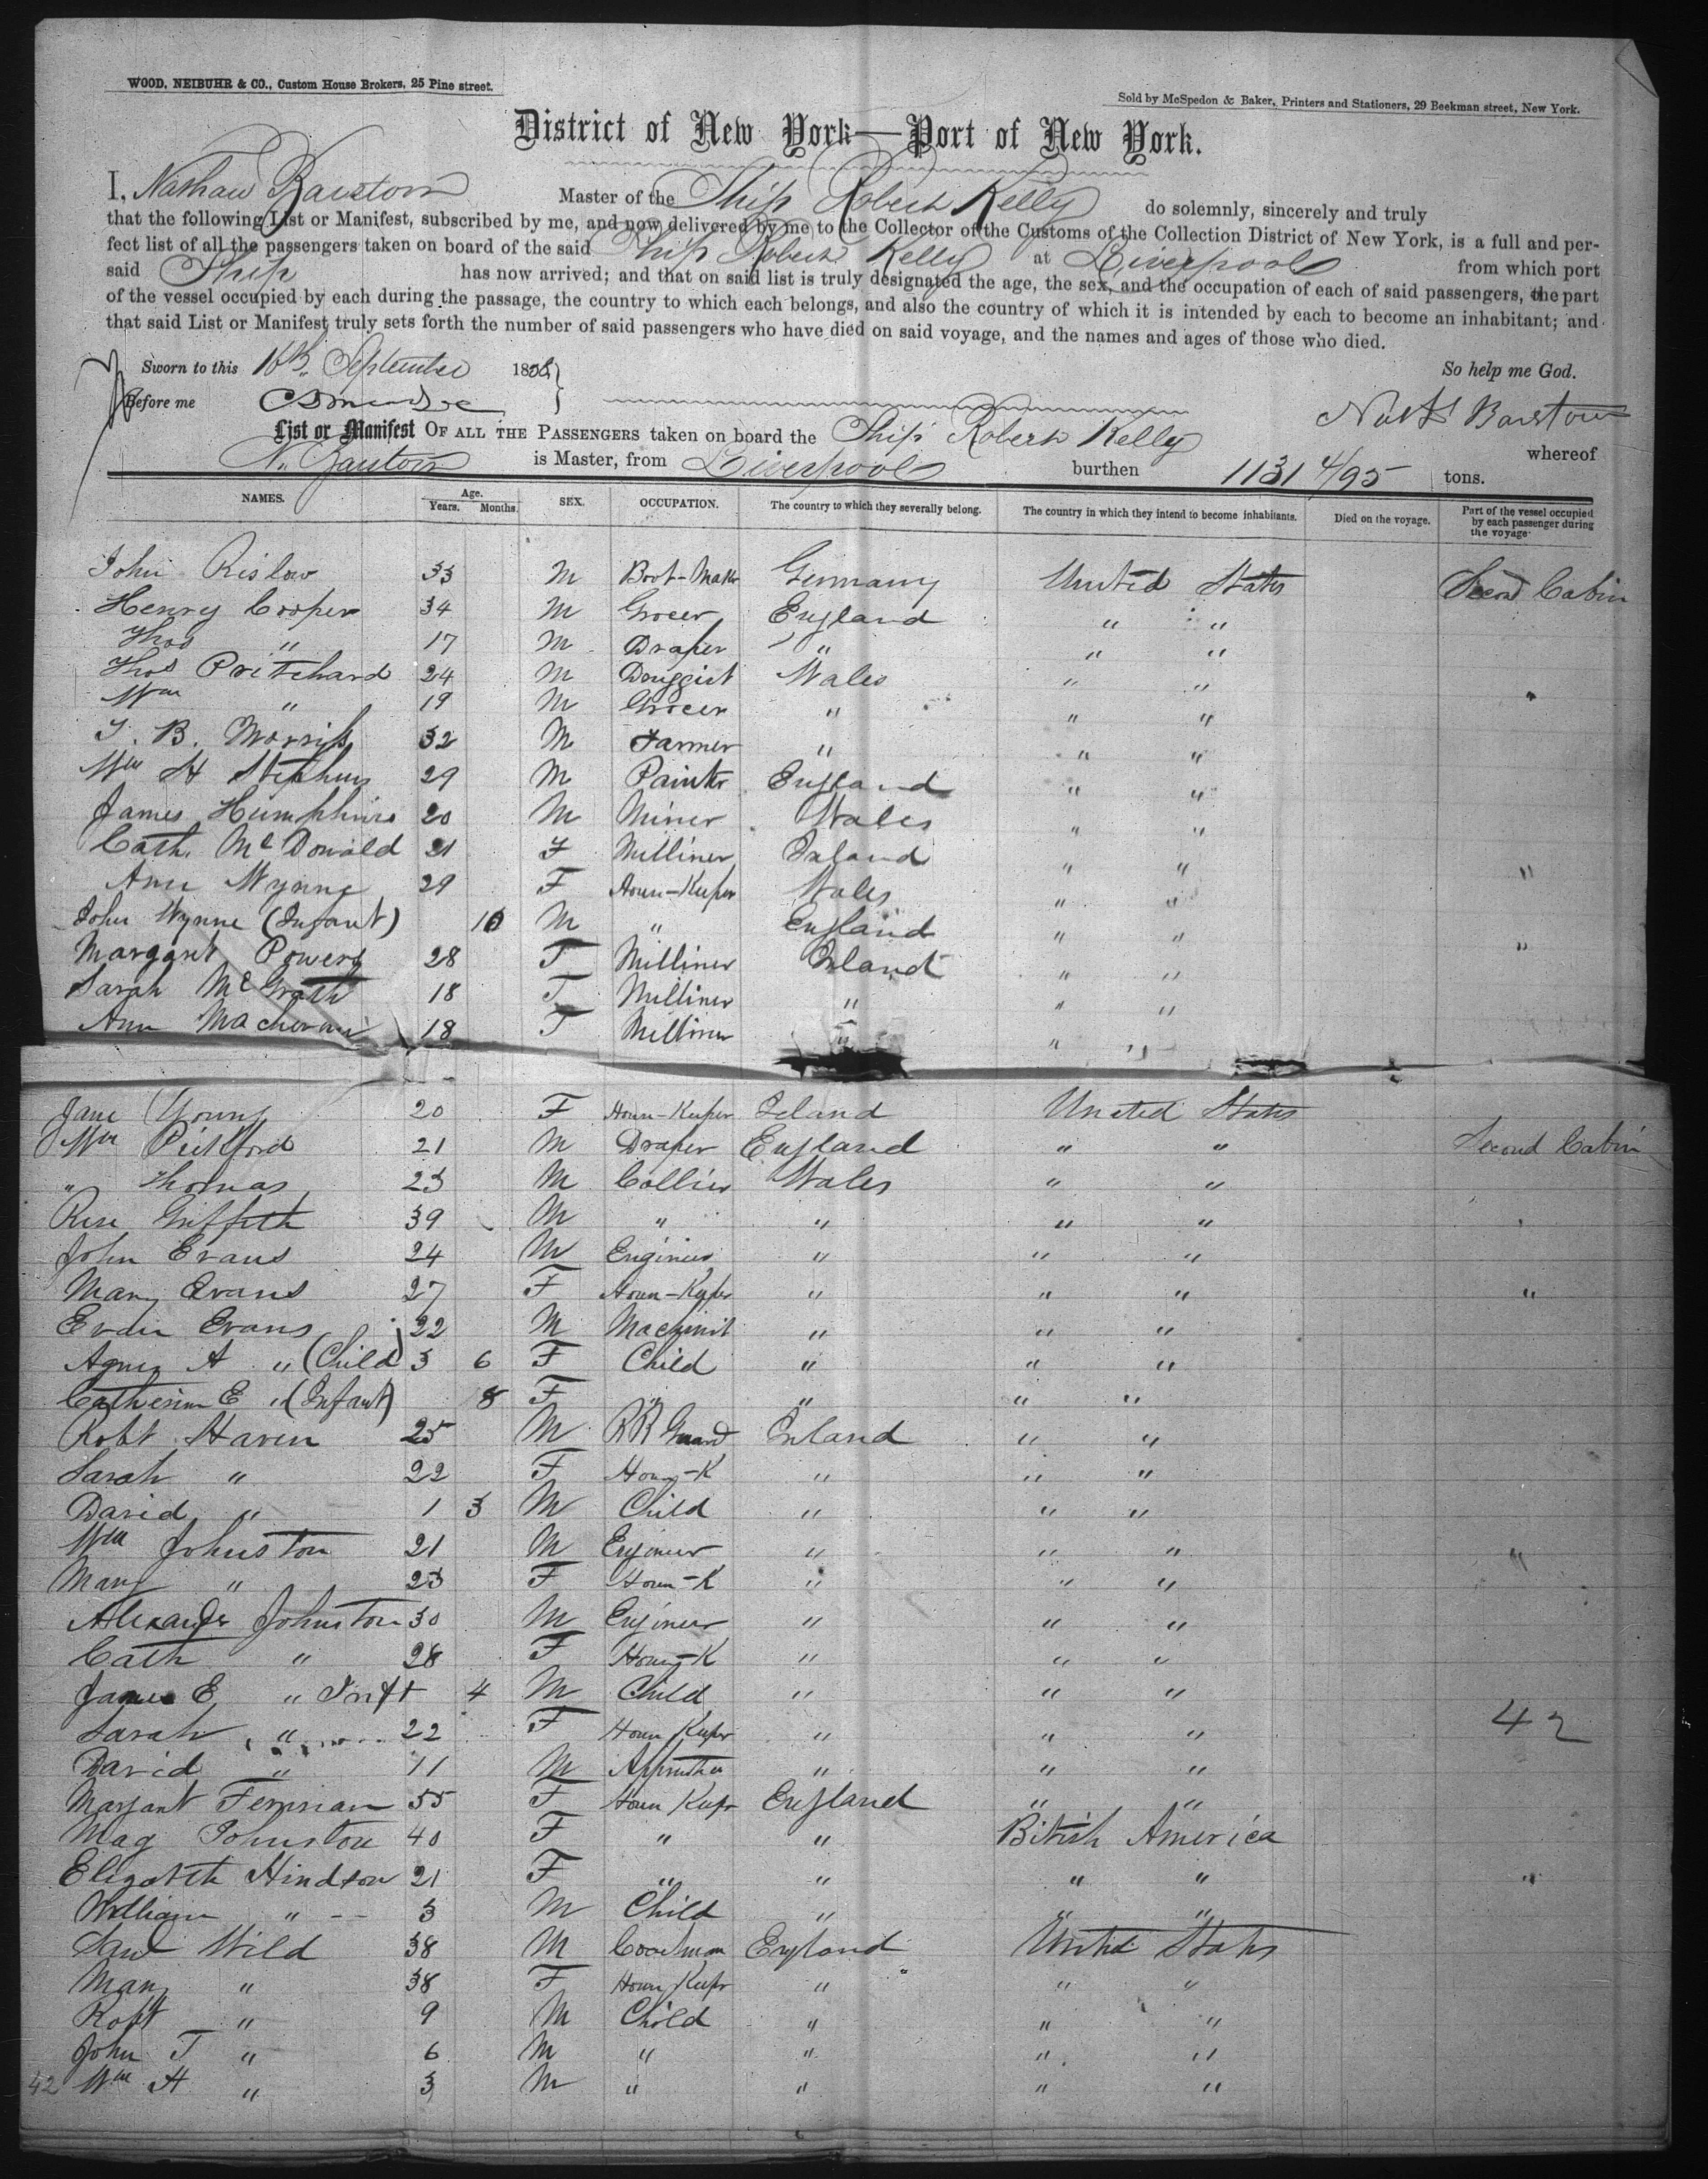 WOOD, NEIBUHR & CO., Custom House Brokers, 25 Pine street.
Sold by McSpedon & Baker, Printers and Stationers, 29 Beekman street, New York.
District of New York—Port of New York.
I, Nathan Barstow Master of the Ship Robert Kelly do solemnly, sincerely and truly
that the following List or Manifest, subscribed by me, and now delivered by me to the Collector of the Customs of the Collection District of New York, is a full and per-
fect list of all the passengers taken on board of the said Ship Robert Kelly at Liverpool from which port
said Ship has now arrived; and that on said list is truly designated the age, the sex, and the occupation of each of said passengers, the part
of the vessel occupied by each during the passage, the country to which each belongs, and also the country of which it is intended by each to become an inhabitant; and
that said List or Manifest truly sets forth the number of said passengers who have died on said voyage, and the names and ages of those who died.
Sworn to this 16th September 18 So help me God.
Before me Nath Barstow
List or Manifest OF ALL THE PASSENGERS taken on board the Ship Robert Kelly whereof
N. Barstow is Master, from Liverpool burthen 1131 4/95 tons.
NAMES. Age. Years. Months. SEX. OCCUPATION. The country to which they severally belong. The country in which they intend to become inhabitants. Died on the voyage. Part of the vessel occupied by each passenger during the voyage
John Rislow 33 M Boot-Maker Germany United States Second Cabin
Henry Cooper 34 M Grocer England " "
Thos " 17 M Draper " " "
Thos Pritchard 24 M Druggist Wales " "
Wm " 19 M Grocer " " " "
T. B. Morris 32 M Farmer " " "
Wm H Stephens 29 M Painter England " "
James Humphries 20 M Miner Wales " "
Cath. McDonald 21 F Milliner Ireland " "
Ann Wynne 29 F House-Keeper Wales " " "
John Wynne (Infant) 10 M " England " "
Margaret Powers 28 F Milliner Ireland " " "
Sarah McGrath 18 F Milliner " " "
Ann 18 F Milliner " " "
Jane Young 20 F House-Keeper Ireland United States
Wm Pickford 21 M Draper England " " Second Cabin
" Thomas 23 M Collier Wales " "
Rese Griffith 39 M " " " "
John Evans 24 M Engineer " " "
Mary Evans 27 F House-Keeper " " " "
Evan Evans 22 M Machinist " " "
Agnes A " (Child) 3 6 F Child " " "
Catherine E " (Infant) 8 F " " " "
Robt Haven 25 M RR Guard Ireland " "
Sarah " 22 F House-K " " "
David " 1 3 M Child " " "
Wm Johnston 21 M Engineer " " " "
Mary " 23 F House-K " " "
Alexander Johnston 30 M Engineer " " "
Cath " 28 F House-K " " "
James E " Inft 4 M Child " " "
Sarah " 22 F House Keeper " " " 42
David " 11 M Apprentice " " "
Margaret 55 F House Keeper England " "
Mag Johnston 40 F " " British America
Elizabeth Hindson 21 F " " " " "
William " 3 M Child " " "
Saml Wild 38 M Coachman England United States
Mary " 38 F House Keeper " " "
Robt " 9 M Child " " "
John T " 6 M " " " "
42 Wm H " 3 M " " " "